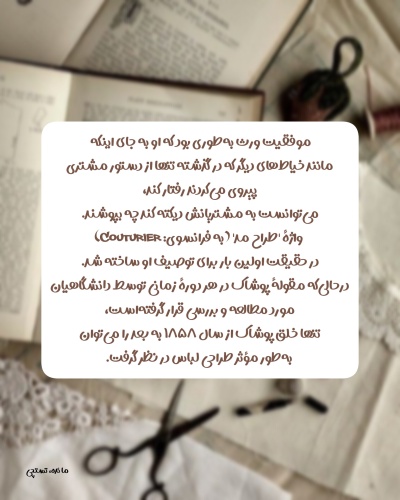 موفقیت ورث به‌طوری بود که او به جای اینکه
مانند خیاط‌های دیگر که در گذشته تنها از دستور مشتری
پیروی می‌کردند رفتار کند،
می‌توانست به مشتریانش دیکته کند چه بپوشند.
واژهٔ 'طراح مد' (به فرانسوی: COUTURIER)
در حقیقت اولین بار برای توصیف او ساخته شد.
درحالی‌که مقولهٔ پوشاک در هر دورهٔ زمانی توسط دانشگاهیان
مورد مطالعه و بررسی قرار گرفته‌است،
تنها خلق پوشاک از سال ۱۸۵۸ به بعد را می‌توان
به‌طور مؤثر طراحی لباس در نظر گرفت.